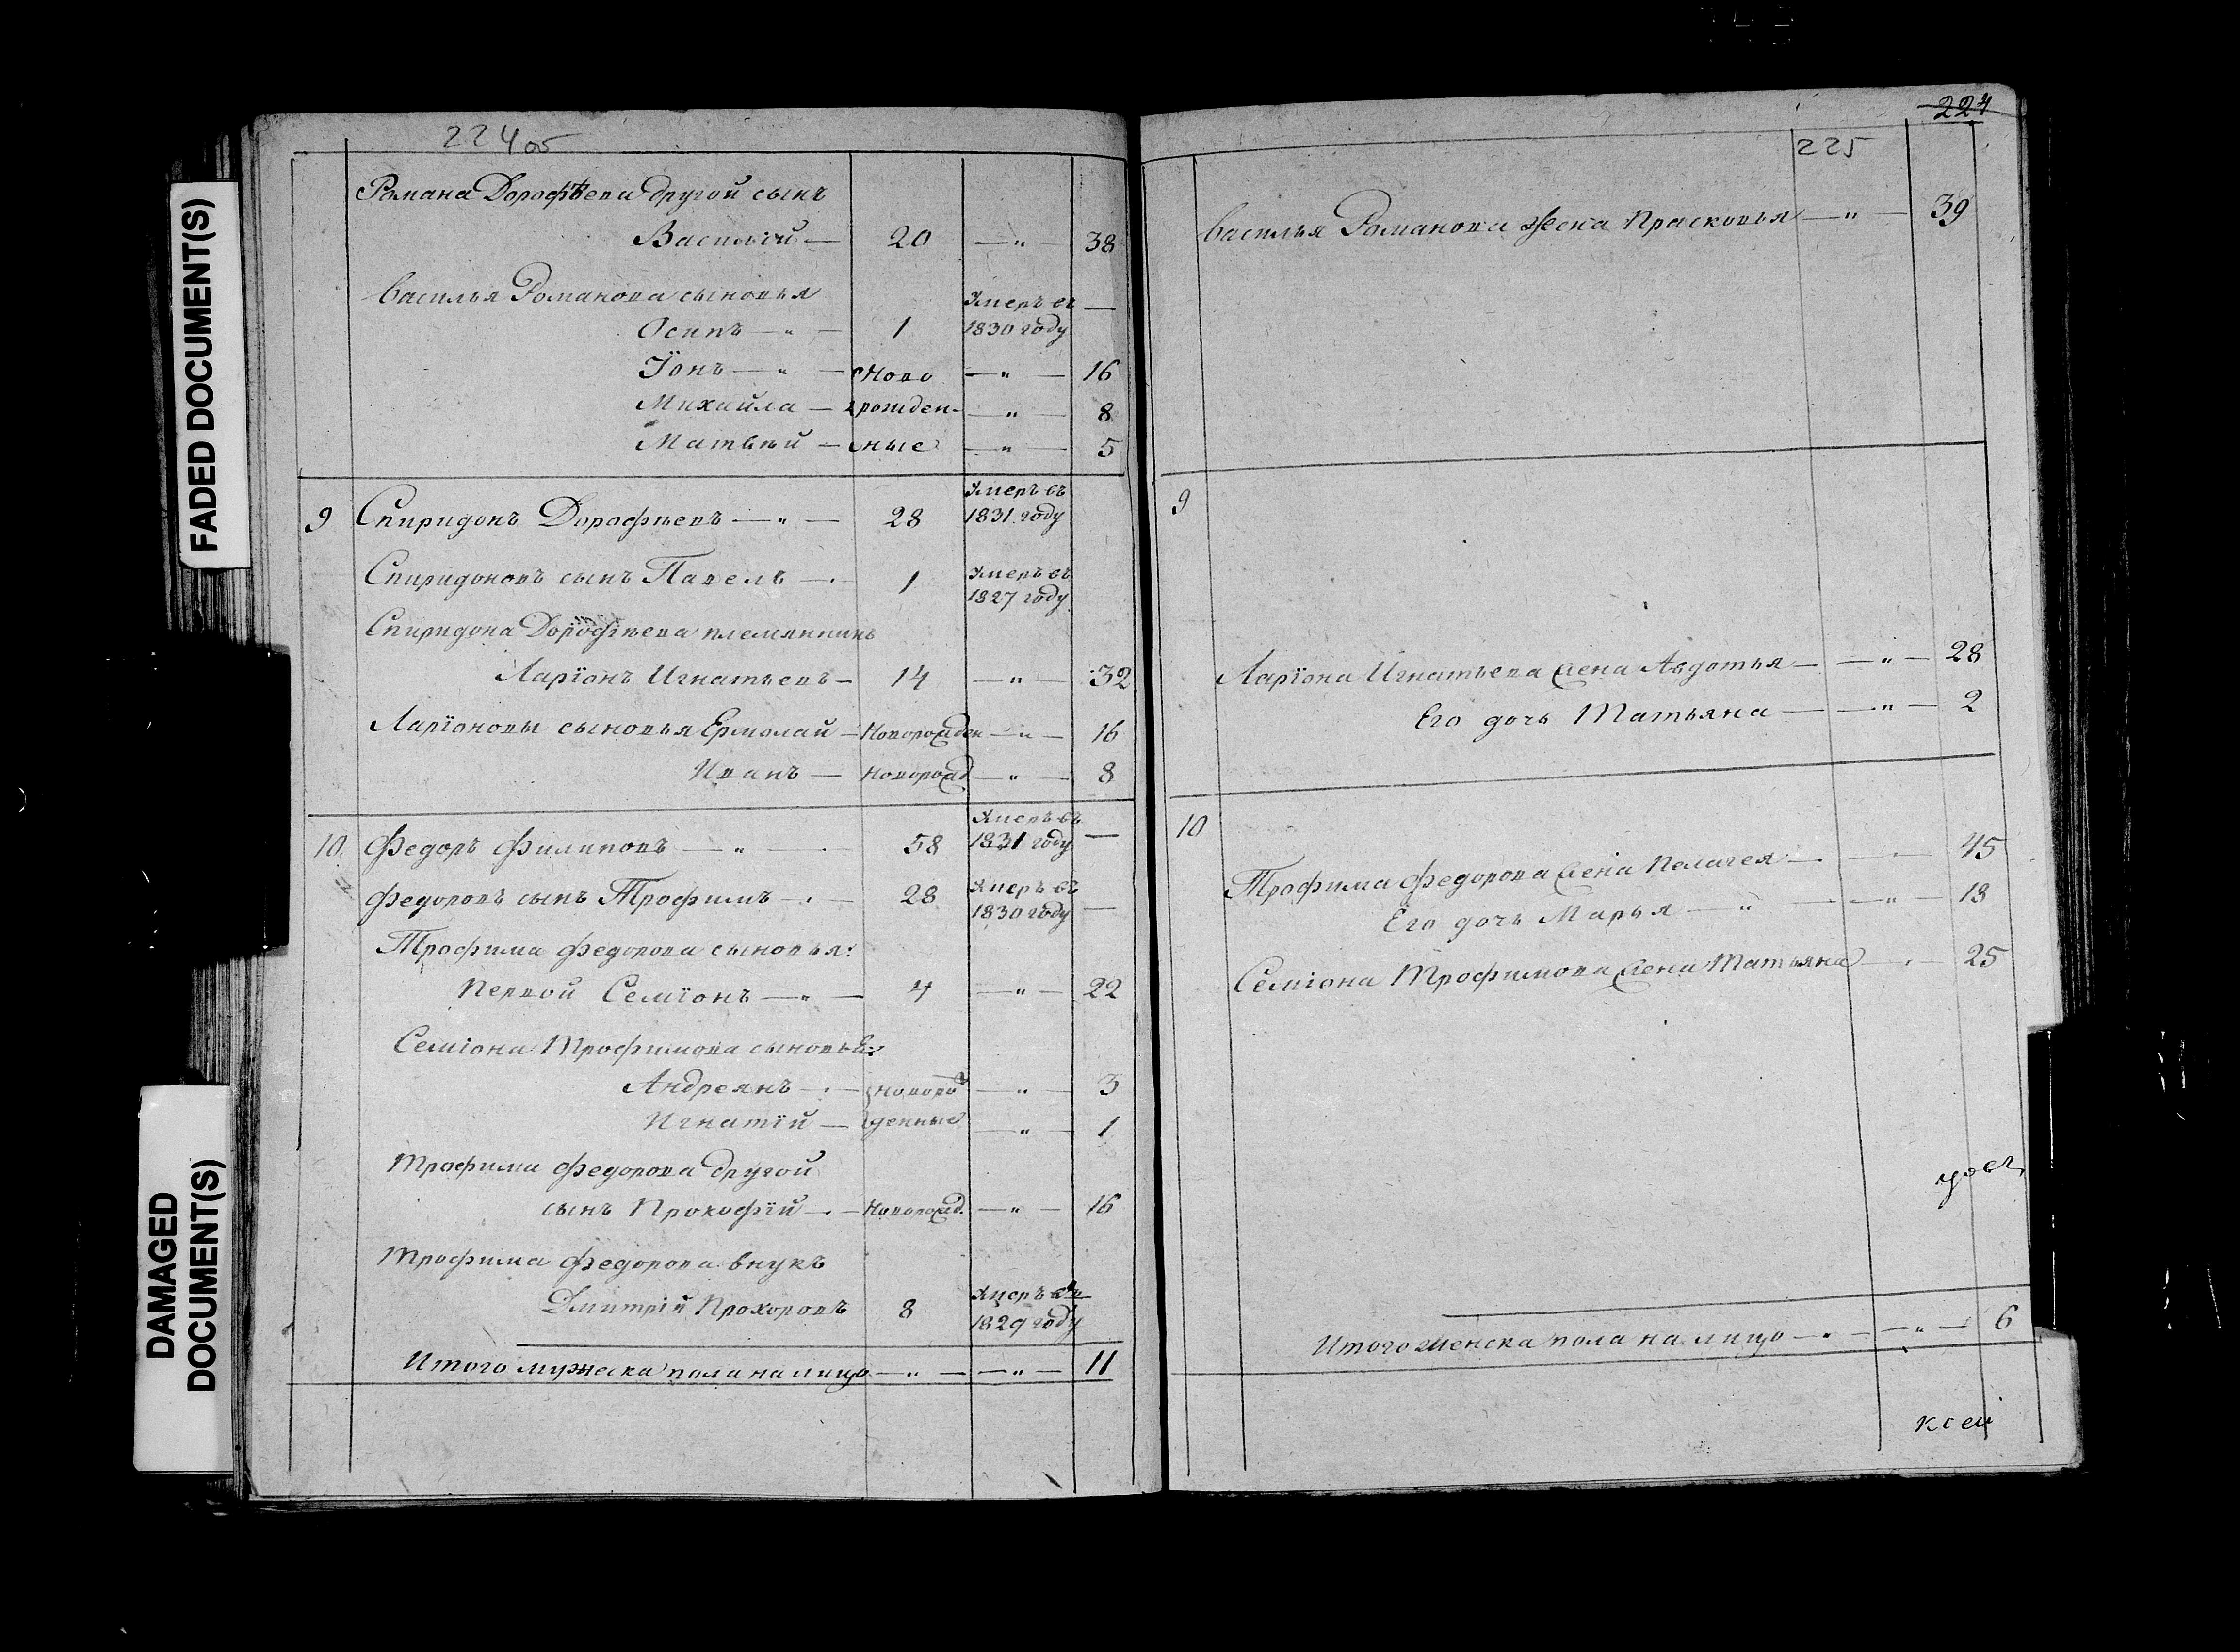 FADED DOCUMENT(S)
DAMAGED
DOCUMENT(S)
224 об
Романа Дорофѣева другой сынъ
Василiй — 20 — „ — 38
Василья Романова сыновья
Осипъ — „ — 1 Умеръ въ 1830 году —
Iонъ — „ — Ново — „ — 16
Михайла — рожден- — „ — 8
Матвѣй — ные — „ — 5
9 Спиридонъ Дорофѣевъ — „ — 28 Умеръ въ 1831 году
Спиридоновъ сынъ Павелъ — 1 Умеръ въ 1827 году
Спиридона Дорофѣева племянникъ
Ларiонъ Игнатьевъ — 14 — „ — 32
Ларiоновы сыновья Ермолай — Новорожден — „ — 16
Иванъ — Новорожд — „ — 8
10 Федоръ Филиповъ — „ — 58 Умеръ въ 1831 году —
Федоровъ сынъ Трофимъ — 28 Умеръ въ 1830 году —
Трофима Федорова сыновья:
Первой Семiонъ — „ — 4 — „ — 22
Семiона Трофимова сыновья:
Андреянъ — новоро — „ — 3
Игнатiй — денные — „ — 1
Трофима Федорова другой
сынъ Прокофiй — Новорожд. — „ — 16
Трофима Федорова внукъ
Дмитрiй Прохоровъ 8 Умеръ въ 1829 году
Итого мужеска пола на лицо — „ — — „ — 11
224
225
Василья Романова жена Прасковья — „ — 39
9
Ларiона Игнатьева жена Авдотья — — „ — 28
Его дочь Татьяна — — „ — 2
10
Трофима Федорова жена Пелагея — — 45
Его дочь Марья — „ — — „ — 18
Семiона Трофимова жена Татьяна — 25
Итого женска пола на лицо — „ — — „ — 6
к сей